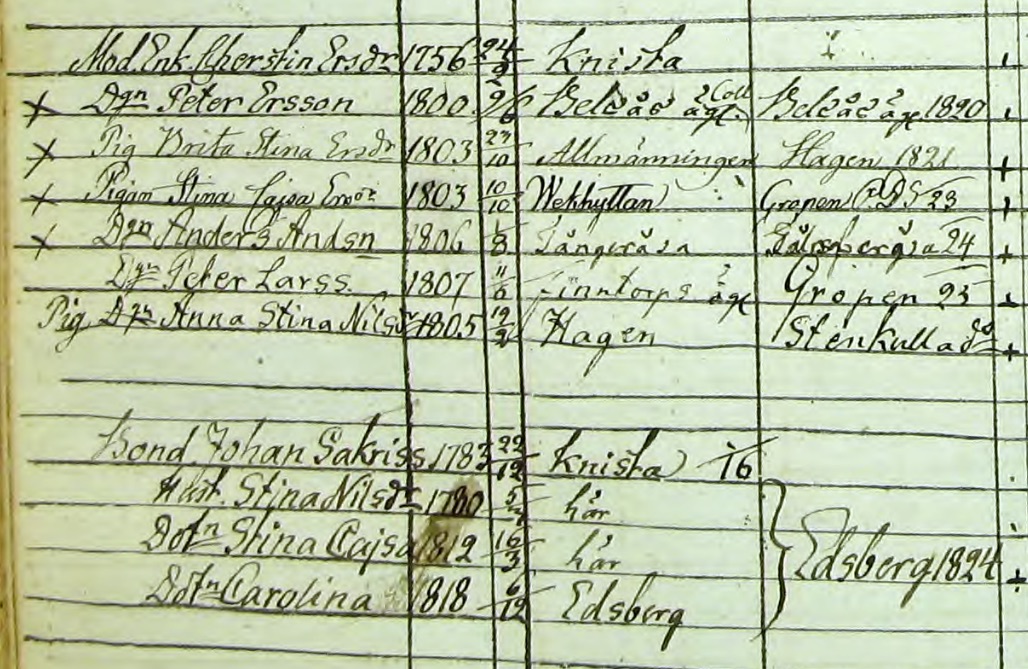 Mod. Enk. Cherstin Ersdr 1756 24/3 Knista
x Dgn Peter Ersson 1800 9/6 1820
x Pig Brita Stina Ersdr 1803 23/10 Allmänningen Hagen 1821
x Pigan Stina Cajsa 1803 10/10 Wekhyttan Gropen 23
x Dgn Anders Andsn 1806 24
Dgn Peter Larss. 1807 11/6 Finntorps Gropen 23
Pig Dgn Anna Stina Nilsdr 1805 19/2 Hagen Stenkulla
Bond. Johan Sakriss 1783 22/12 Knista 16
Hust. Stina Nilsdr 1780 här
Dotn Stina Cajsa 1812 16/3 här Edsberg 1824
Dotn Carolina 1818 6/12 Edsberg